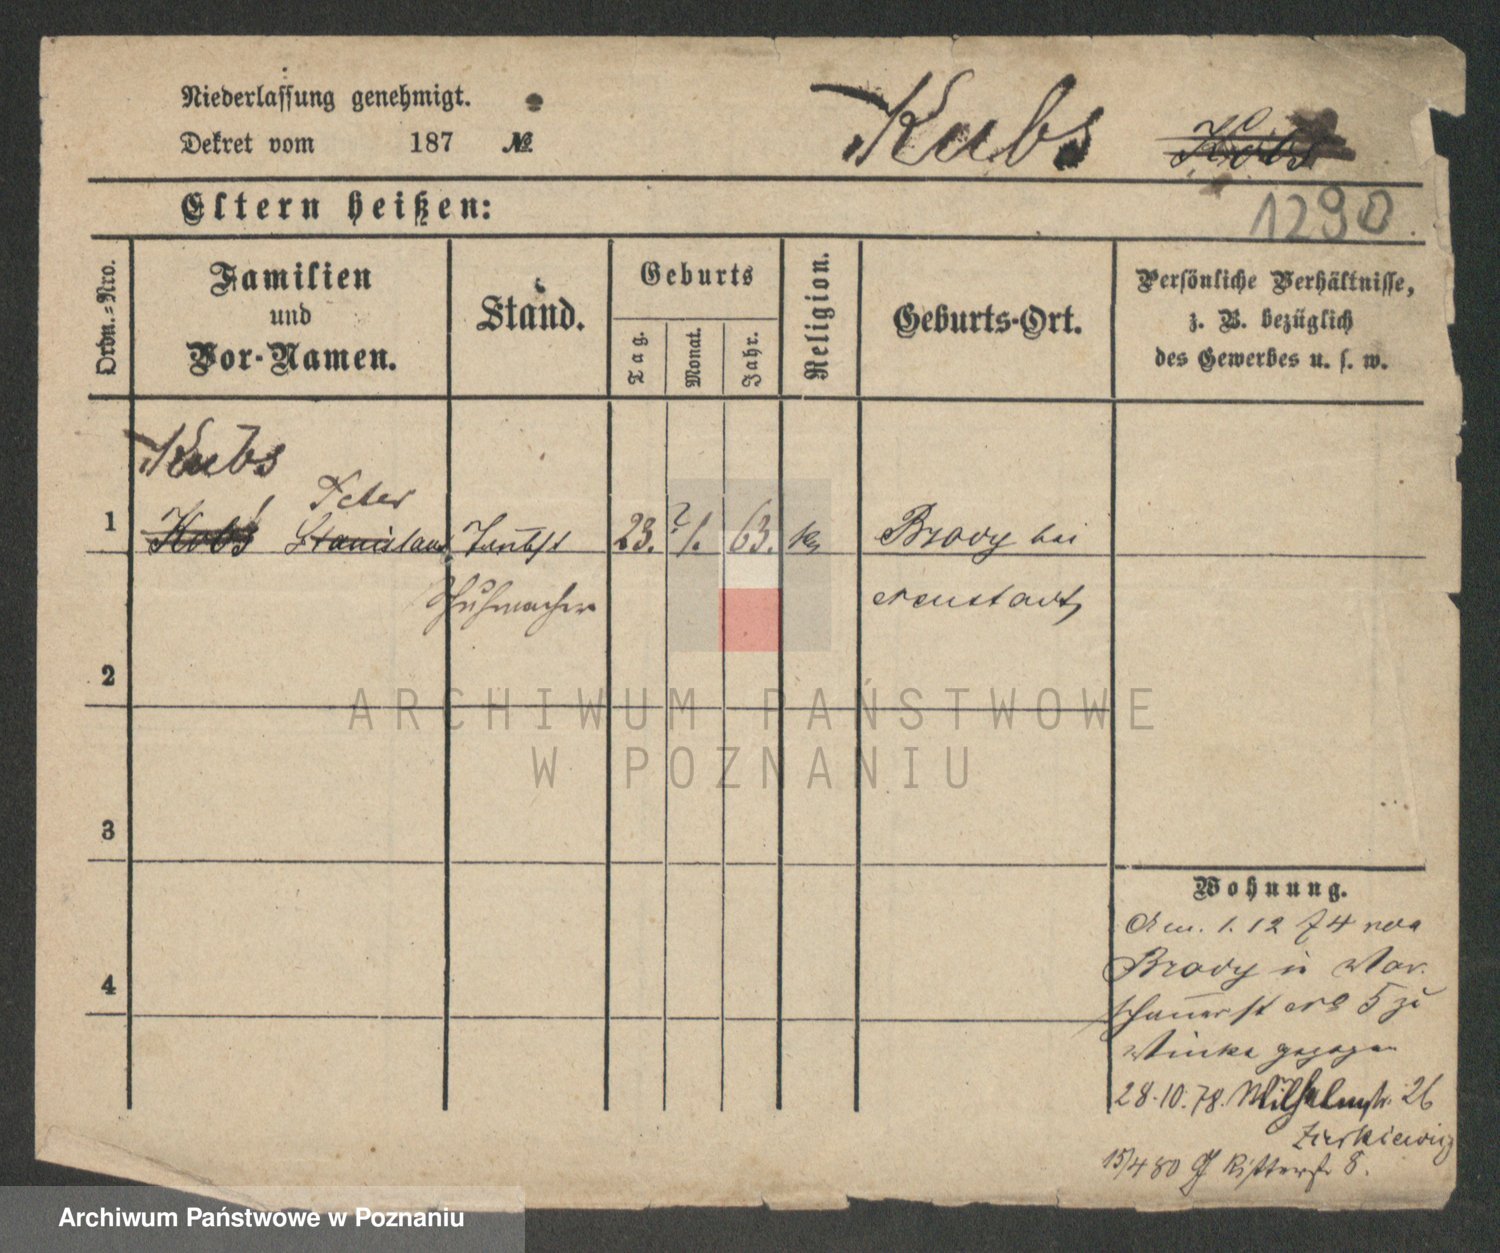 Niederlassung genehmigt.
Dekret vom 187 №
Kubs Kobs
Eltern heißen:
1290
Ordn.-Nro.
Familien
und
Vor-Namen.
Stand.
Geburts
Tag.
Monat.
Jahr.
Religion.
Geburts-Ort.
Persönliche Verhältnisse,
z. B. bezüglich
des Gewerbes u. s. w.
Kubs
Peter
1 Kobs Stanislaus 23. 63. Brody bei
Schuhmacher Neustadt
2
ARCHIWUM PAŃSTWOWE
W POZNANIU
3
4
Wohnung.
Am. 1. 12 74 von
Brody in War
schauerst No 5 zu
gezogen
28.10.78. Wilhelmstr. 26
Zierkiewicz
15/4 80 Ritterstr 8.
Archiwum Państwowe w Poznaniu